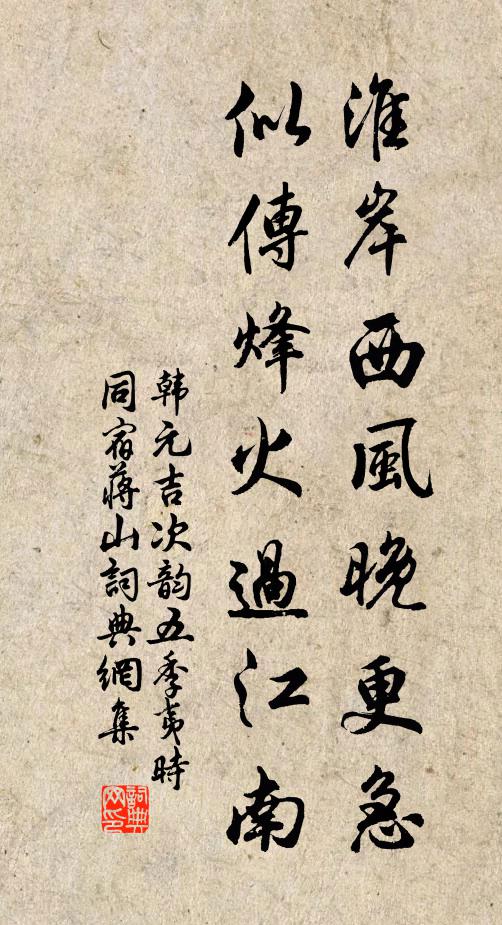 淮岸西風晚更急
似傳烽火過江南
韩元吉次韵五季夷時
同宿蔣山詞典網集
詞典网印